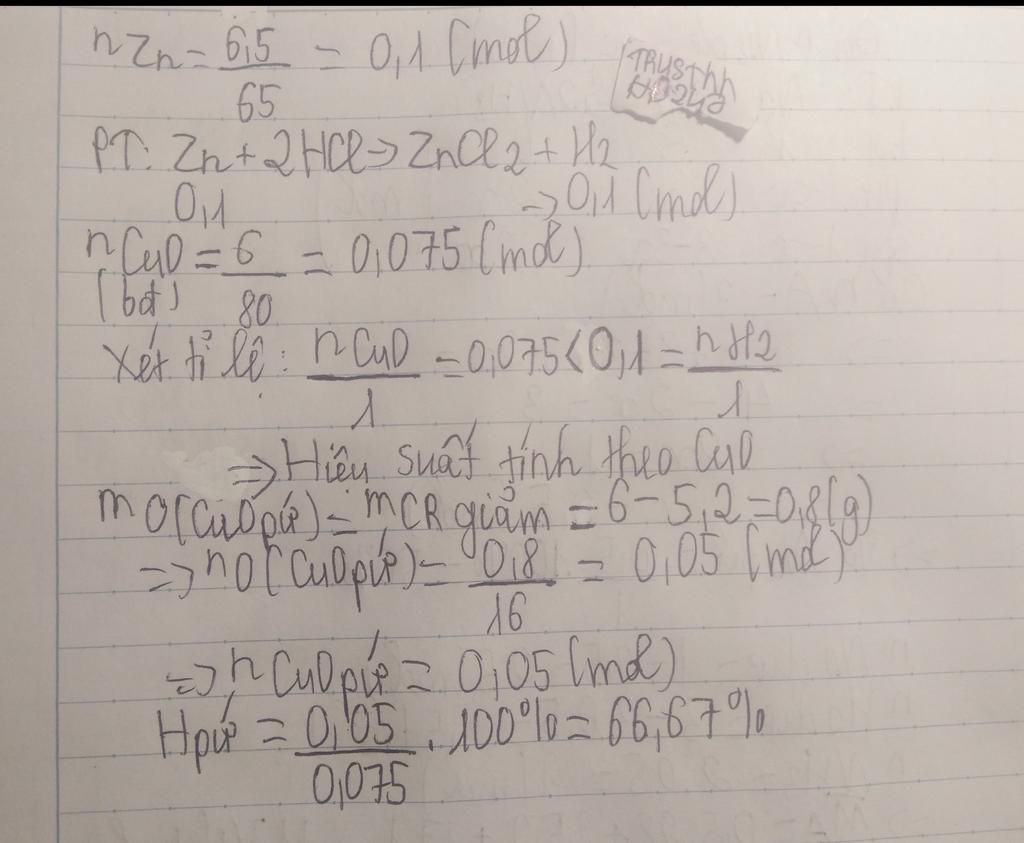 nZn = 6,5/65 = 0,1 (mol)
TRUSTHH
PT: Zn + 2HCl → ZnCl2 + H2
0,1 → 0,1 (mol)
nCuO = 6/80 = 0,075 (mol)
(bđ)
Xét tỉ lệ: nCuO/1 = 0,075 < 0,1 = nH2/1
⇒ Hiệu suất tính theo CuO
mO(CuO pứ) = mCR giảm = 6 - 5,2 = 0,8 (g)
⇒ nO(CuO pứ) = 0,8/16 = 0,05 (mol)
⇒ nCuO pứ = 0,05 (mol)
Hpứ = 0,05/0,075 . 100% = 66,67%